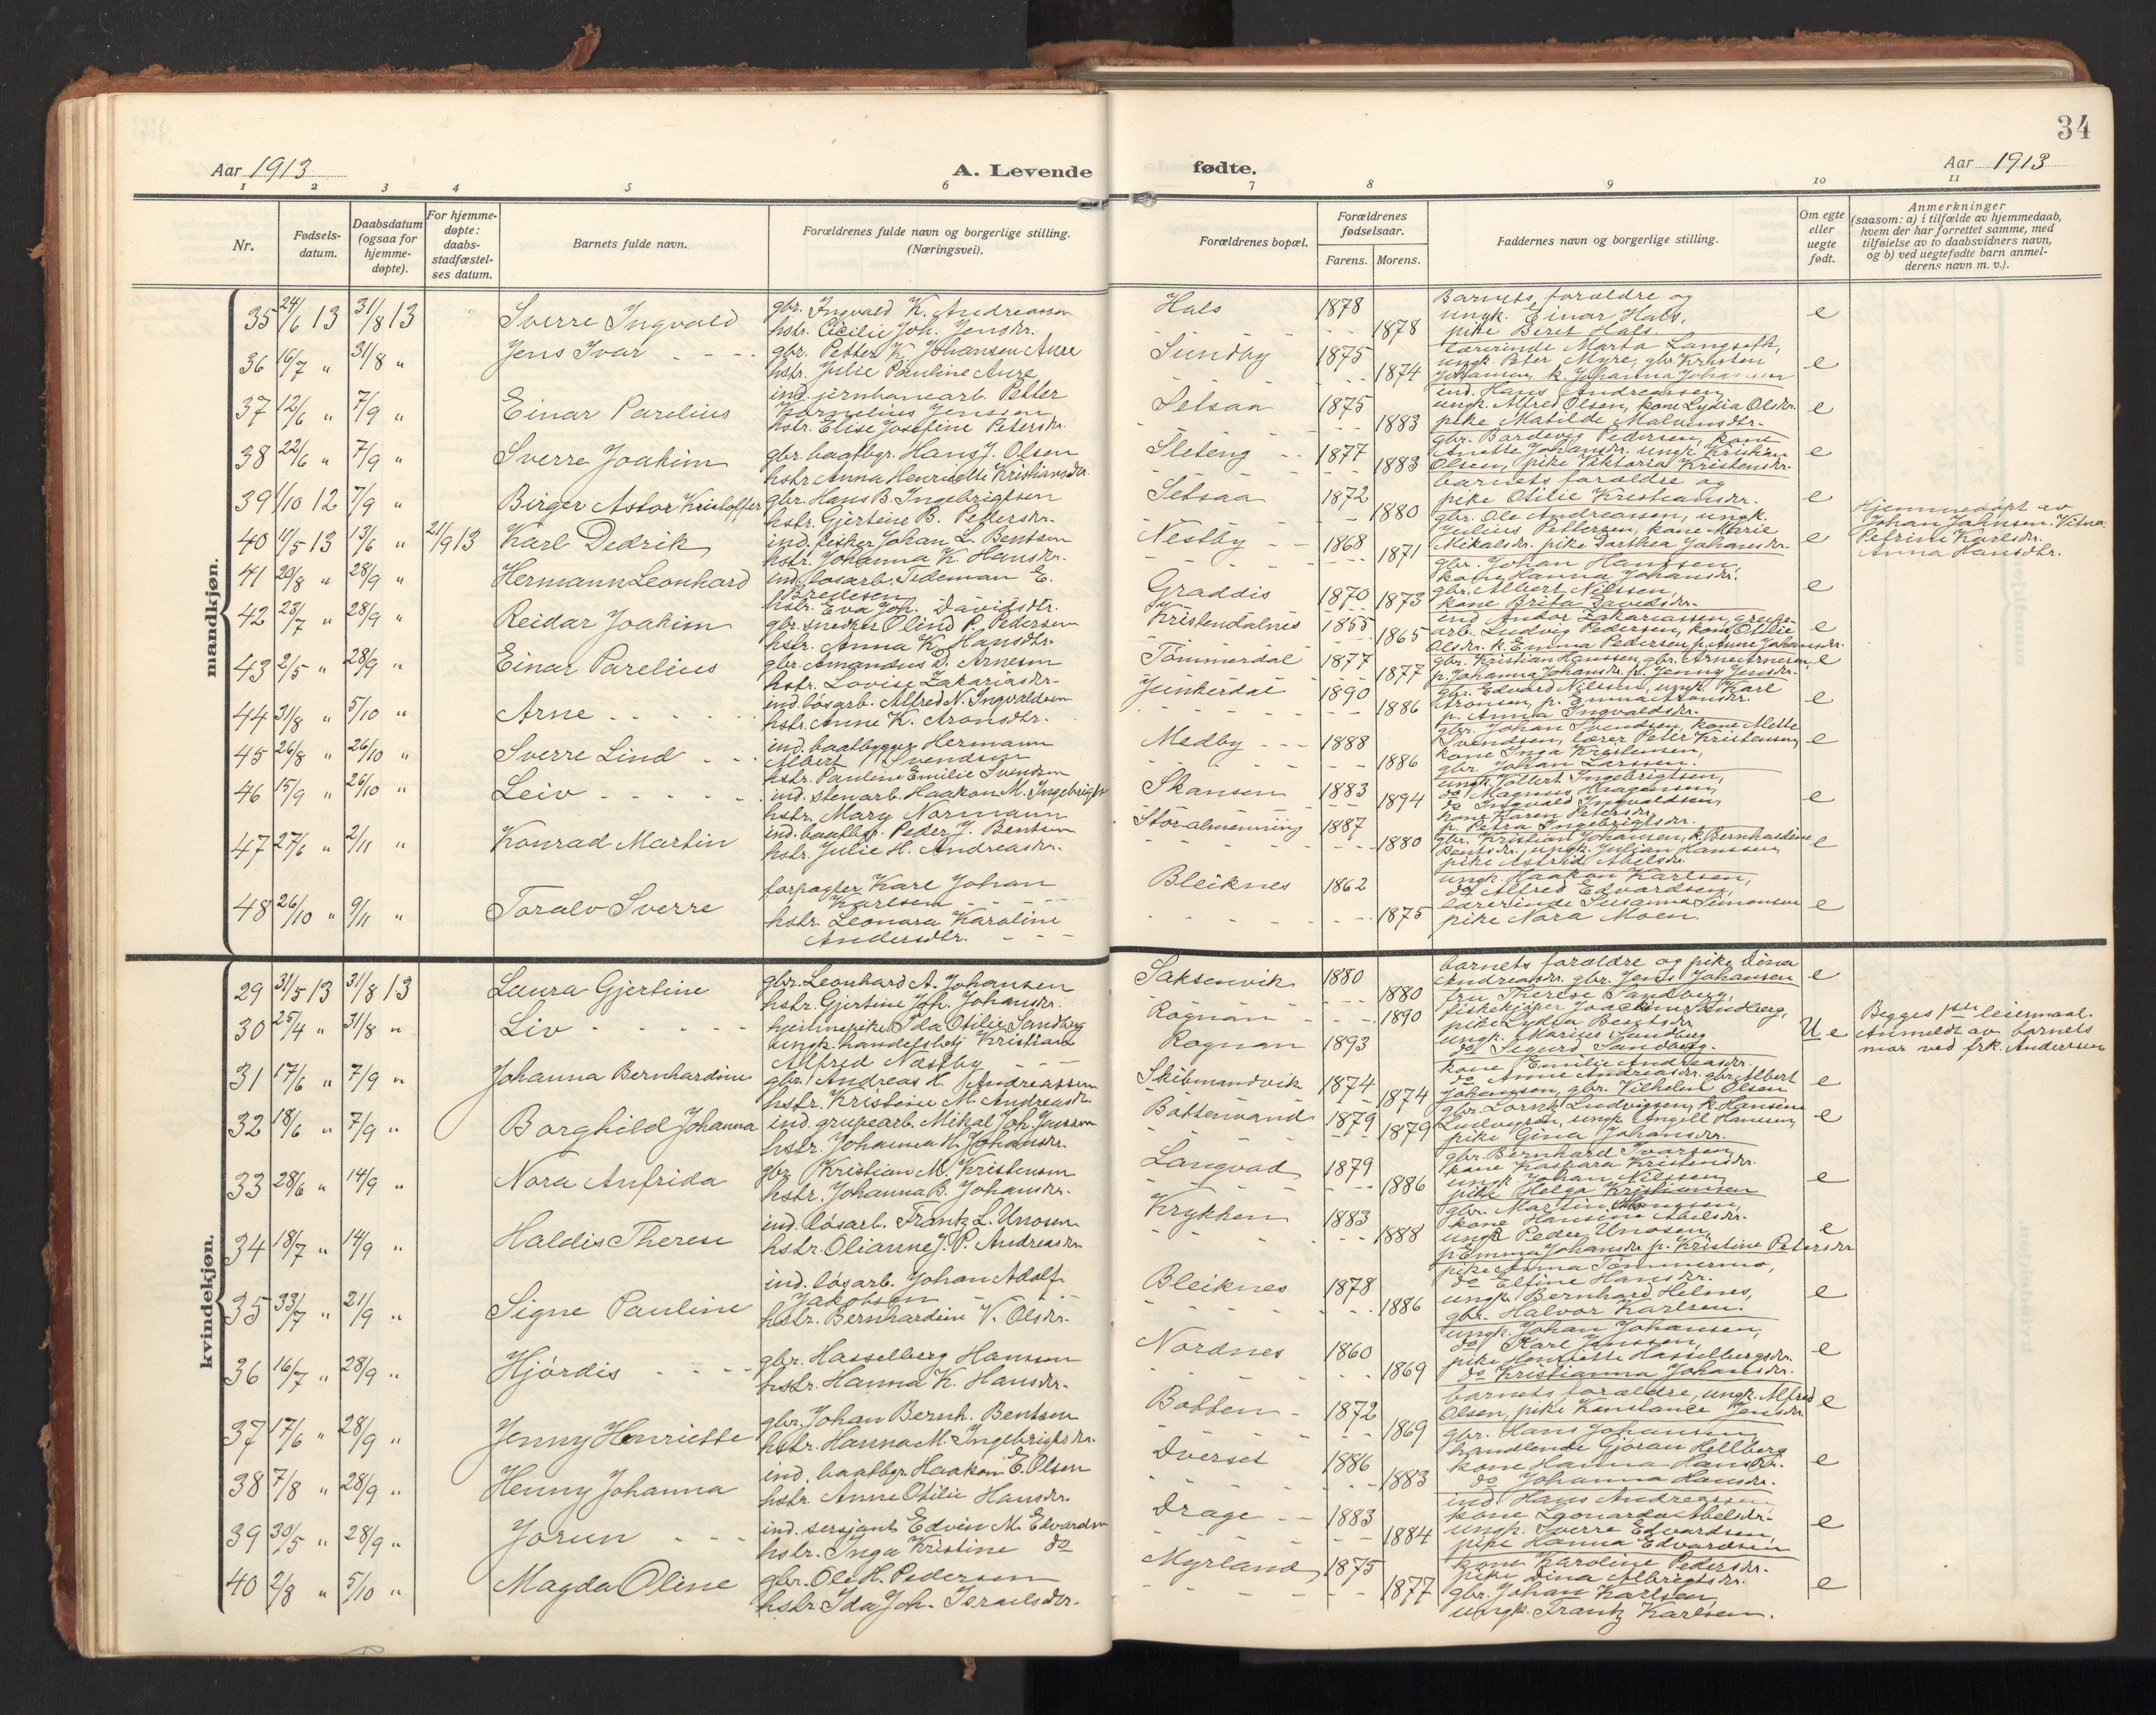 34
Aar 1913
A. Levende
fødte.
Aar 1913
1 2 3 4 5 6 7 8 9 10 11
Nr.
Fødsels-
datum.
Daabsdatum
(ogsaa for
hjemme-
døpte).
For hjemme-
døpte:
daabs-
stadfæstel-
ses datum.
Barnets fulde navn.
Forældrenes fulde navn og borgerlige stilling.
(Næringsvei).
Forældrenes bopæl.
Forældrenes
fødselsaar.
Farens. Morens.
Faddernes navn og borgerlige stilling.
Om egte
eller
uegte
født.
Anmerkninger
(saasom: a) i tilfælde av hjemmedaab,
hvem der har forrettet samme, med
tilføielse av to daabsvidners navn,
og b) ved uegtefødte barn anmel-
derens navn m. v.).
mandkjøn.
35 24/6 13 31/8 13 Sverre Ingvald
gbr. Ingvald K. Andreassen
hstr. Cecilie Joh. Jensdr.
Hals 1878
1878
Barnets foraldre og
ungk. Einar Hals,
pike Beret Hals.
e
36 16/7 " 31/8 " Jens Ivar
gbr. Petter K. Johansen Aure
hstr. Julie Pauline Aure
Sundby 1875
1874
lærerinde Marta Langseth,
ungk. Peter Myre, gbr. Kristen
Johansen, k. Johanna Johansen
e
37 12/6 " 7/9 " Einar Parelius
ind. jernbanearb. Petter
Kornelius Jenssen
hstr. Elise Josefine Petersdr.
Setsaa 1875
1883
ind. Hans Andreassen,
ungk. Alfred Olsen, kone Lydia Olsdr.
pike Matilde Malvinsdtr.
e
38 22/6 " 7/9 " Sverre Joakim
gbr. baatbgr. Hans J. Olsen
hstr Anna Henriette Kristiansdtr.
Sleteng 1877
1883
gbr. Bardevig Pedersen, kone
Anette Johansdr. ungk. Kristian
Olsen, pike Viktoria Kristensdr.
e
39 1/10 12 7/9 " Birger Astor Kristoffer
gbr. Hans B. Ingebrigtsen
hstr. Gjertine B. Pedersdr.
Setsaa 1872
1880
barnets foraldre og
pike Otilie Kristiansdr.
e
40 11/5 13 13/6 " 21/9 13 Karl Dedrik
ind. fisker Johan L. Bentsen
hstr. Johanna K. Hansdr.
Nestby 1868
1871
gbr. Ole Andreassen, ungk.
Julius Pettersen, kone Marie
Mikalsdr. pike Darthea Johansdr.
e
Hjemmedøpt av
Johan Johnsen. Vitne
Petrine Karlsdr.
Anna Hansdtr.
41 20/8 " 28/9 " Hermann Leonhard
ind. losarb. Tideman E.
Bredesen
hstr. Eva Joh. Davidsdtr.
Graddis 1870 1873
gbr. Johan Hanssen,
kone Hanna Johansdr.
gbr. Albert Nilssen,
kone Brita Davidsdr.
e
42 23/7 " 28/9 " Reidar Joakim
gbr. snedker Olind P. Pedersen
hstr. Anna K. Hansdtr.
Kristendalnes 1855
1865
ind Andor Zakariassen, grube-
arb. Ludvig Pedersen, kone Otilie
Olsdr. k. Emma Pedersen p. Anne Johansdr.
e
43 2/5 " 28/9 " Einar Parelius
gbr. Amandus D. Arnesen
hstr. Lovise Zakariasdr.
Tømmerdal 1877
1877
gbr. Kristian Hanssen, gbr. Arne Arnesen,
p. Johanna Johansdr. p. Jenny Jensdr.
e
44 31/8 " 5/10 " Arne
ind. løsarb. Alfred N. Ingvaldsen
hstr. Anne K. Aronsdtr.
Junkerdal 1890
1886
gbr. Edvard Nilssen, ungk. Karl
Aronsen, p. Emma Aronsdr.
p. Anna Ingvaldsdr.
e
45 26/8 " 26/10 " Sverre Lind
ind. baatbygger Hermann
Albert Svendsen
hstr. Pauline Emilie Svendsen
Medby 1888
1886
gbr. Johan Svendsen, kone Mette
Svendsen, lærer Peter Kristensen,
kone Inga Kristensen,
gbr. Johan Larssen.
e
46 15/9 " 26/10 " Leiv
ind. stenarb. Haakon M. Ingebrigts
hstr. Mary Normann
Skansen 1883
1894
ungk. Vollert Ingebrigtsen,
do Magnus Haagensen,
do Ingvald Ingvaldsen,
kone Karen Petersdr.
p. Petra Ingebrigtsdr.
e
47 27/6 " 2/11 " Konrad Martin
ind. baatbgr. Peder J. Bentsen
hstr. Julie H. Andreasdr.
Storalmenning 1887
1880
gbr. Kristian Johansen, k. Bernhardine
Bentsdr., ungk. Julian Hanssen
pike Astrid Abelsdr.
e
48 26/10 " 9/11 " Toralv Sverre
forpagter Karl Johan
Karlsen
hstr. Leonara Karoline
Andersdtr.
Bleiknes 1862
1875
ungk. Haakon Karlsen,
do Alfred Edvardsen,
lærerinde Susanna Simonsen
pike Nora Moen.
e
kvindekjøn.
29 31/5 13 31/8 13 Laura Gjertine
gbr. Leonhard A. Johansen
hstr. Gjertine Joh. Johansdr.
Saksenvik 1880
1880
barnets foraldre og pike Dina
Andreasdr. gbr. Jens Johansen
e
30 25/4 " 31/8 " Liv
hjemmepike Ida Otilie Sandberg
ungk. handelsbetj Kristian
Alfred Næstby
Rognan 1890
Rognan 1893
fru Therese Sandberg,
fiskekjøper Joachim Sandberg,
pike Lydia Bentsdr.
ungk. Marius Sandberg
do Sigurd Sandberg.
U e
Begges 1ste leiermaal.
Anmeldt av barnets
mor ved frk. Anderssen
31 17/6 " 7/9 " Johanna Bernhardine
gbr. Andreas K. Andreassen
hstr. Kristine M. Andreasdr.
Skibmandvik 1874
1874
kone Emilie Andreasdr.
do Anne Andreasdr. gbr. Albert
Johansen, gbr. Vilhelm Olsen
e
32 18/6 " 7/9 " Borghild Johanna
ind. grupearb. Mikal Joh. Jenssen
hstr. Johanna H. Johansdr.
Bottenvand 1879
1879
gbr. Lorntz Ludvigsen, k. Hansine
Ludvigsen, ungk. Angell Hanssen
pike Gina Johansdr.
e
33 28/6 " 14/9 " Nora Anfrida
gbr Kristian M. Kristensen
hstr. Johanna B. Johansdr.
Langvad 1879
1886
gbr. Bernhard Ivarsen
kone Kaspara Kristensdr.
ungk Johan Nilssen
pike Helga Kristiansen
e
34 18/7 " 14/9 " Haldis Therese
ind. løsarb. Frantz L. Unosen
hstr. Olianne J. P. Andreasdr.
Krykken 1883
1888
gbr. Martin
kone Hansine Abelsdr.
ungk Peder Unosen,
p. Emma Johansdr p. Kristine Petersdr
e
35 33/7 " 21/9 " Signe Pauline
ind. løsarb. Johan Adolf
Jakobsen
hstr. Bernhardine V. Olsdr.
Bleiknes 1878
1886
pike Anna Tømmermo,
do Elfine Hansdr.
ungk. Bernhard Helnes,
gbr. Halvor Karlsen.
e
36 16/7 " 28/9 " Hjørdis
gbr. Hasselberg Hanssen
hstr. Hanna K. Hansdr.
Nordnes 1860
1869
ungk. Johan Johansen,
do Karl Janssen,
pike Henriette Hasselbergsdr.
do Kristianna Johansdr.
e
37 17/6 " 28/9 " Jenny Henriette
gbr. Johan Bernh. Bentsen
hstr. Hanna M. Ingebrigtsdr.
Botten 1872
1869
barnets foraldre, ungk. Alfred
Olsen, pike Konstance Jensdr.
gbr. Hans Johansen
e
38 7/8 " 28/9 " Henny Johanna
ind. baatbgr. Haakon E. Olsen
hstr. Anne Otilie Hansdr.
Dverset 1886
1883
handlende Gjøran Hellberg
kone Hanna Hansdr.
do Johanna Hansdr.
e
39 30/5 " 28/9 " Jorun
ind. sersjant Edvin M. Edvardsen
hstr. Inga Kristine do
Drage 1883
1884
ind. Hans Andreassen
kone Leonarda Abelsdr.
ungk. Sverre Edvardsen,
pike Hanna Edvardsen
e
40 2/8 " 5/10 " Magda Oline
gbr. Ole H. Pedersen
hstr Ida Joh. Israelsdtr.
Myrland 1875
1877
kone Karoline Pedersdr.
pike Dina Albrigtsdr.
gbr. Johan Karlsen
ungk. Frantz Karlsen.
e